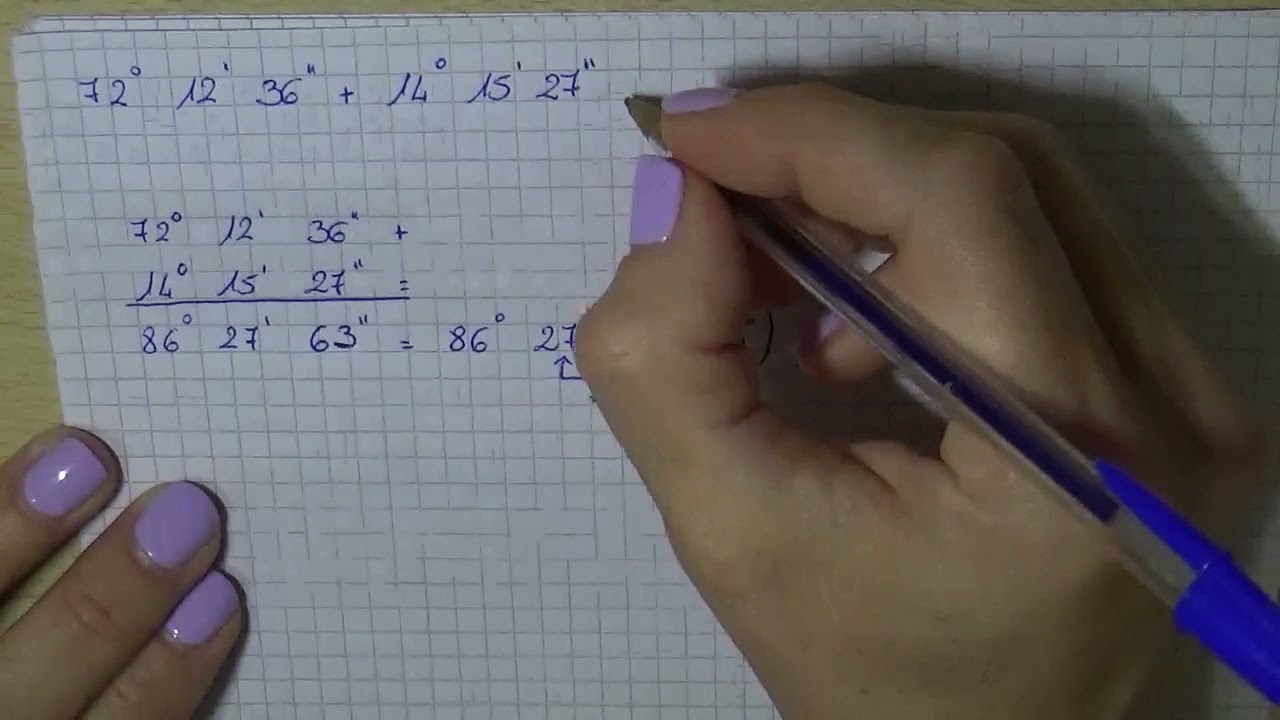 72° 12' 36" + 14° 15' 27"
72° 12' 36" +
14° 15' 27" =
86° 27' 63" = 86° 27 )